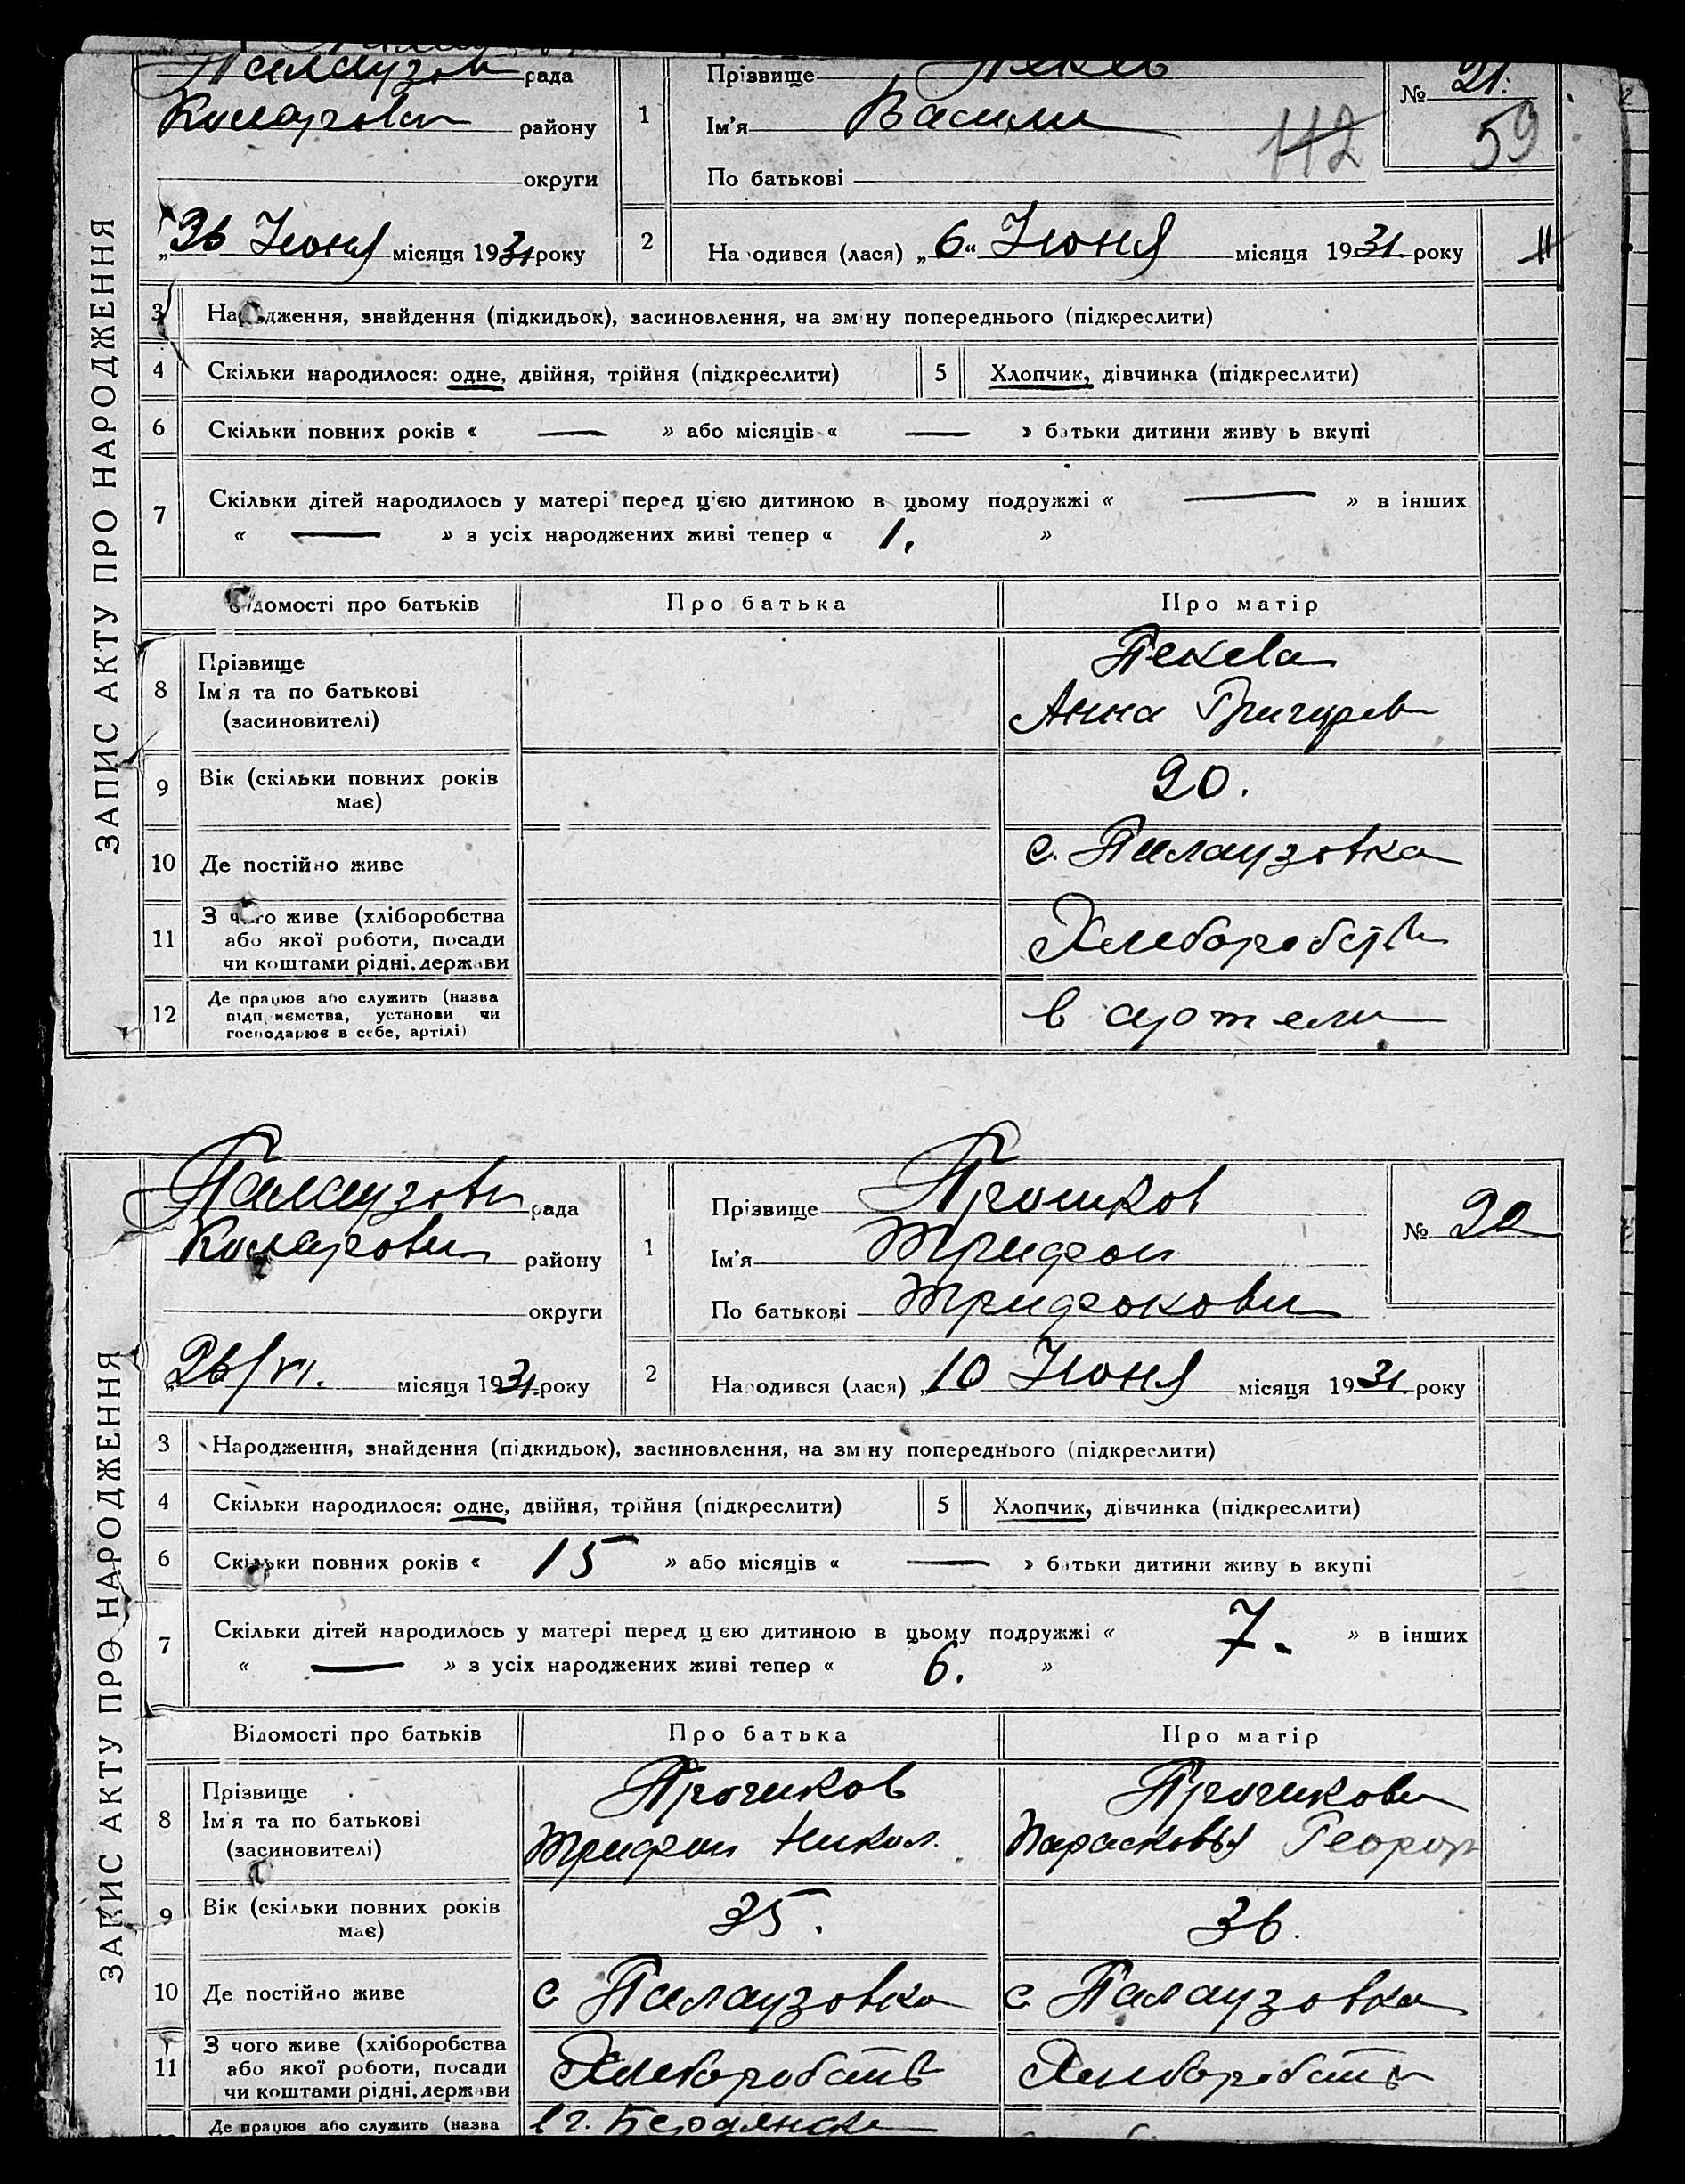 ЗАПИС АКТУ ПРО НАРОДЖЕННЯ
Палаузов рада
району
округи
„26 Июня місяця 1931 року
1 Прізвище Пекев
Ім'я Васили
По батькові
112
№ 21.
59
2 Народився (лася) „6“ Июня місяця 1931 року
3 Народження, знайдення (підкидьок), засиновлення, на зміну попереднього (підкреслити)
4 Скільки народилося: одне, двійня, трійня (підкреслити) 5 Хлопчик, дівчинка (підкреслити)
6 Скільки повних років « — » або місяців « — » батьки дитини живуть вкупі
7 Скільки дітей народилось у матері перед цією дитиною в цьому подружжі « — » в інших
« — » з усіх народжених живі тепер « 1. »
Відомості про батьків Про батька Про матір
8 Прізвище
Ім'я та по батькові
(засиновителі)
Пекева
Анна
9 Вік (скільки повних років має) 20.
10 Де постійно живе с. Палаузовка
11 З чого живе (хліборобства
або якої роботи, посади
чи коштами рідні, держави
12 Де працює або служить (назва
підприємства, установи чи
господарює в себе, артілі)
в артели
ЗАПИС АКТУ ПРО НАРОДЖЕННЯ
Палаузовк рада
району
округи
„26/VI. місяця 1931 року
1 Прізвище
Ім'я Трифон
По батькові Трифонович
№ 22
2 Народився (лася) „10 Июня місяця 1931 року
3 Народження, знайдення (підкидьок), засиновлення, на зміну попереднього (підкреслити)
4 Скільки народилося: одне, двійня, трійня (підкреслити) 5 Хлопчик, дівчинка (підкреслити)
6 Скільки повних років « 15 » або місяців « — » батьки дитини живуть вкупі
7 Скільки дітей народилось у матері перед цією дитиною в цьому подружжі « 7. » в інших
« — » з усіх народжених живі тепер « 6. »
Відомості про батьків Про батька Про матір
8 Прізвище
Ім'я та по батькові
(засиновителі)
Трифон Никол.
Парасковья Георг
9 Вік (скільки повних років має) 35. 36.
10 Де постійно живе с Палаузовка с Палаузовка
11 З чого живе (хліборобства
або якої роботи, посади
чи коштами рідні, держави
Де працює або служить (назва
в г. Бердянске